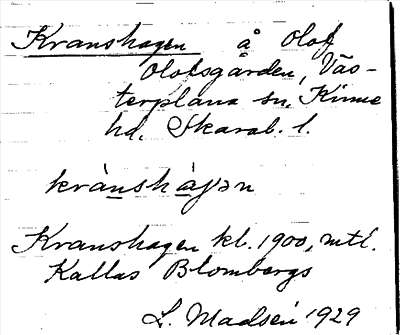 Kranshagen å Olof
Olofsgården, Väs-
terplana sn, Kinne
hd, Skarab. l.
krànshàgən
Kranshagen kl. 1900, mtl.
Kallas Blombergs
L. Madsén 1929